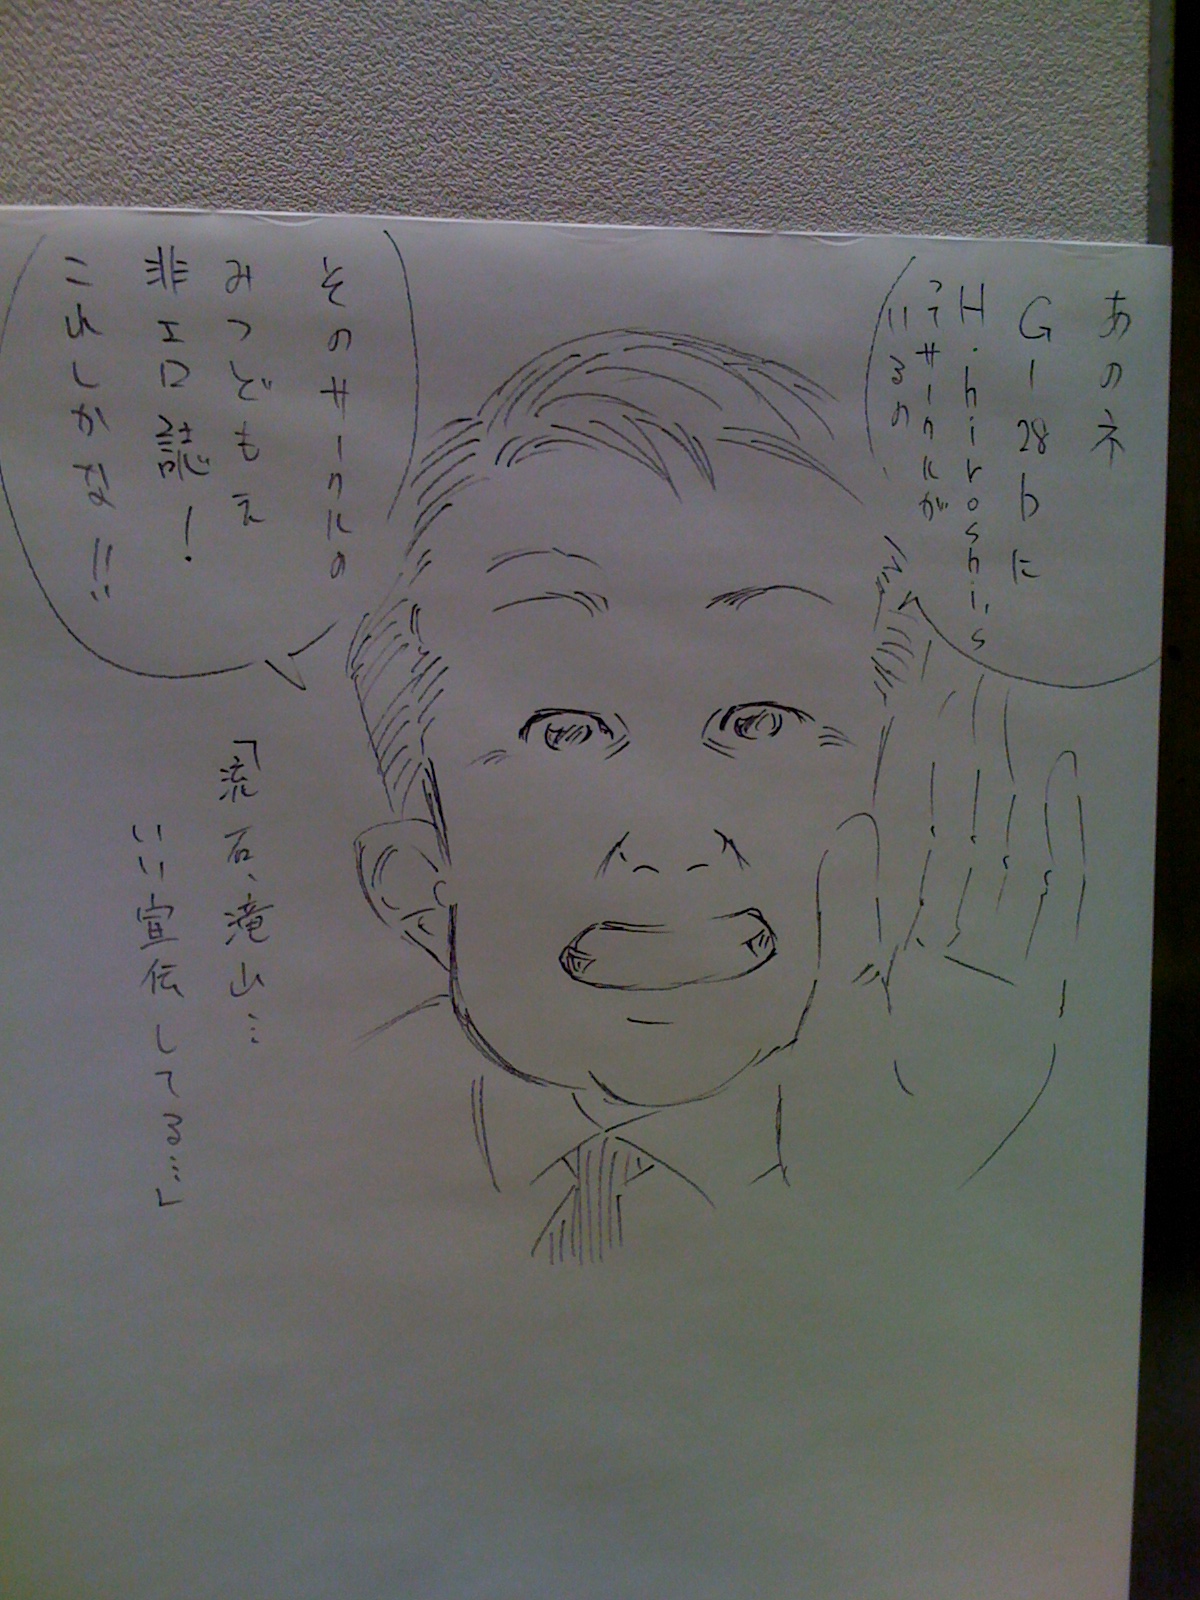 あのネ
G-28bに
H.hiroshi's
ってサークルが
いるの
そのサークルの
みつどもえ
非エロ誌!
これしかな!!
「流石、滝山…
いい宣伝してる…」